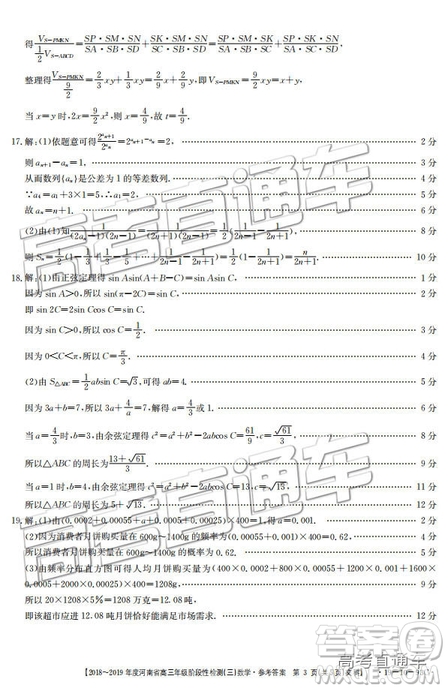 得\frac{V_{S-PMKN}}{\frac{1}{2}V_{S-ABCD}}=\frac{SP·SM·SN}{SA·SB·SD}+\frac{SK·SM·SN}{SC·SB·SD}=\frac{SP·SM·SN}{SA·SB·SD}+\frac{SK·SN}{SC·SD}.
整理得\frac{V_{S-PMKN}}{\frac{9}{2}}=\frac{2}{3}xy+\frac{1}{3}xy=\frac{2}{9}xy,即V_{S-PMKN}=\frac{9}{2}xy=x+y,
当x=y时,2x=\frac{9}{2}x²,则x=\frac{4}{9},故t=\frac{4}{9}.
17.解:(1)依题意可得\frac{2^{a_{n+1}}}{2^{a_n}}=2^{a_{n+1}-a_n}=2, 2分
则a_{n+1}-a_n=1, 3分
从而数列{a_n}是公差为1的等差数列. 4分
∵a₄=a₁+3×1=5,∴a₁=2. 5分
故 6分
(2)由(1)知 8分
则S_n=\frac{1}{2}(1-\frac{1}{3}+\frac{1}{3}-\frac{1}{5}+…+\frac{1}{2n-1}-\frac{1}{2n+1})=\frac{1}{2}(1-\frac{1}{2n+1})=\frac{n}{2n+1}. 10分
18.解:(1)由正弦定理得sin Asin(A+B-C)=sin Asin C, 1分
因为sin A>0,所以sin(π-2C)=sin C, 2分
即sin 2C=2sin Ccos C=sin C.
因为sin C>0,所以cos C=\frac{1}{2}. 3分
因为0<C<π,所以C=\frac{π}{3}. 4分
(2)由S_{△ABC}=\frac{1}{2}absin C=√3,可得ab=4. 5分
因为3a+b=7,所以3a+\frac{4}{a}=7,解得a=\frac{4}{3}或1. 6分
当a=\frac{4}{3}时,b=3,由余弦定理得c²=a²+b²-2abcos C=\frac{61}{9},c=\frac{√61}{3}. 8分
所以△ABC的周长为\frac{13+√61}{3}. 9分
当a=1时,b=4,由余弦定理得c²=a²+b²-2abcos C=13, 11分
所以△ABC的周长为5+√13. 12分
19.解:(1)由(0.0002+0.00055+a+0.0005+0.00025)×400=1,得a=0.001. 2分
(2)因为消费者月饼购买量在600g~1400g的频率为 5分
所以消费者月饼购买量在600g~1400g的概率为0.62. 5分
(3)由频率分布直方图可得人均月饼购买量为(400×0.0002+800×0.00055+1200×0.001+1600×
0.0005+2000×0.00025)×400=1208g. 9分
所以20×1208×5%=1208万克=12.08吨. 11分
即该超市应准备12.08吨月饼恰好能满足市场需求. 12分
【2018~2019年度河南省高三年级阶段性检测(三)数学·参考答案 第3页
高考直通车
高考直通车
高考直通车